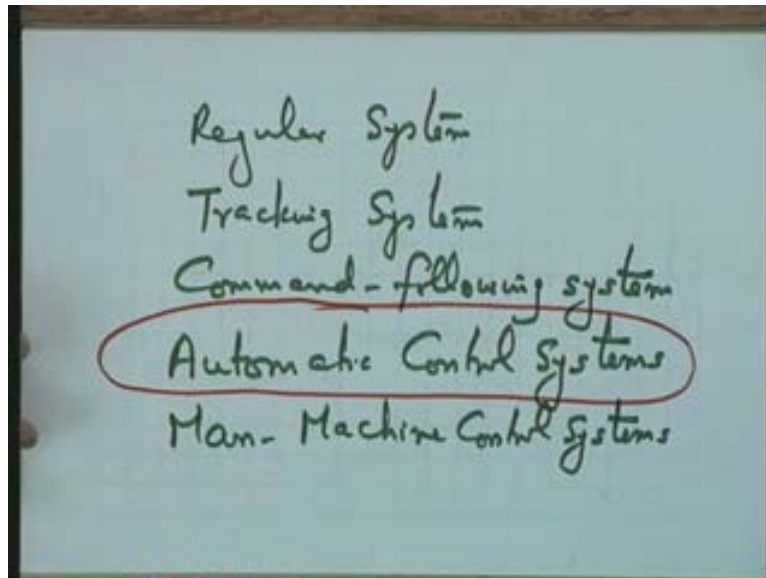 Regular System
Tracking System
Command-following system
Automatic Control Systems
Man-Machine Control Systems